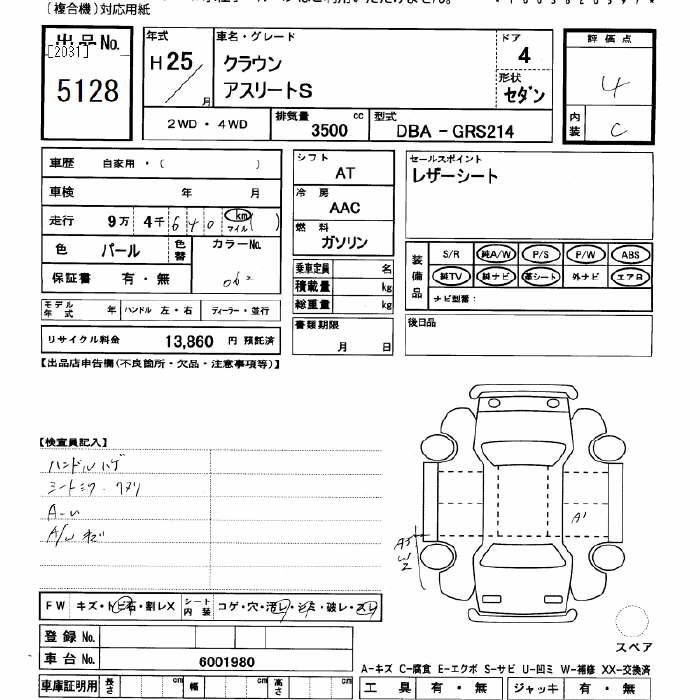 〔複合機〕対応用紙
出品No.
[2031]
5128
年式
H25／
月
車名・グレード
クラウン
アスリートS
ドア
4
形状
セダン
評価点
4
内装
C
2WD・4WD
排気量
3500 cc
型式
DBA － GRS214
車歴 自家用・( )
車検 年 月
走行 9万 4千 6 4 0 km マイル ( )
色 パール 色替 カラーNo.
062
保証書 有・無
シフト
AT
冷房
AAC
燃料
ガソリン
乗車定員 名
積載量 kg
総重量 kg
書類期限
月 日
セールスポイント
レザーシート
装備品
S/R 純A/W P/S P/W ABS
純TV 純ナビ 革シート 外ナビ エアB
ナビ型番：
後日品
モデル年式 年 ハンドル 左・右 ディーラー・並行
リサイクル料金 13,860 円 預託済
【出品店申告欄(不良箇所・欠品・注意事項等)】
【検査員記入】
ハンドルハゲ
A/W キズ
A1
W2
FW キズ・トビ石・割レX シート内装 コゲ・穴・汚レ・シミ・破レ・スレ
登録No.
車台No. 6001980
スペア
A－キズ C－腐食 E－エクボ S－サビ U－凹ミ W－補修 XX－交換済
車庫証明用 長さ cm 幅 cm 高さ cm
工具 有・無 ジャッキ 有・無